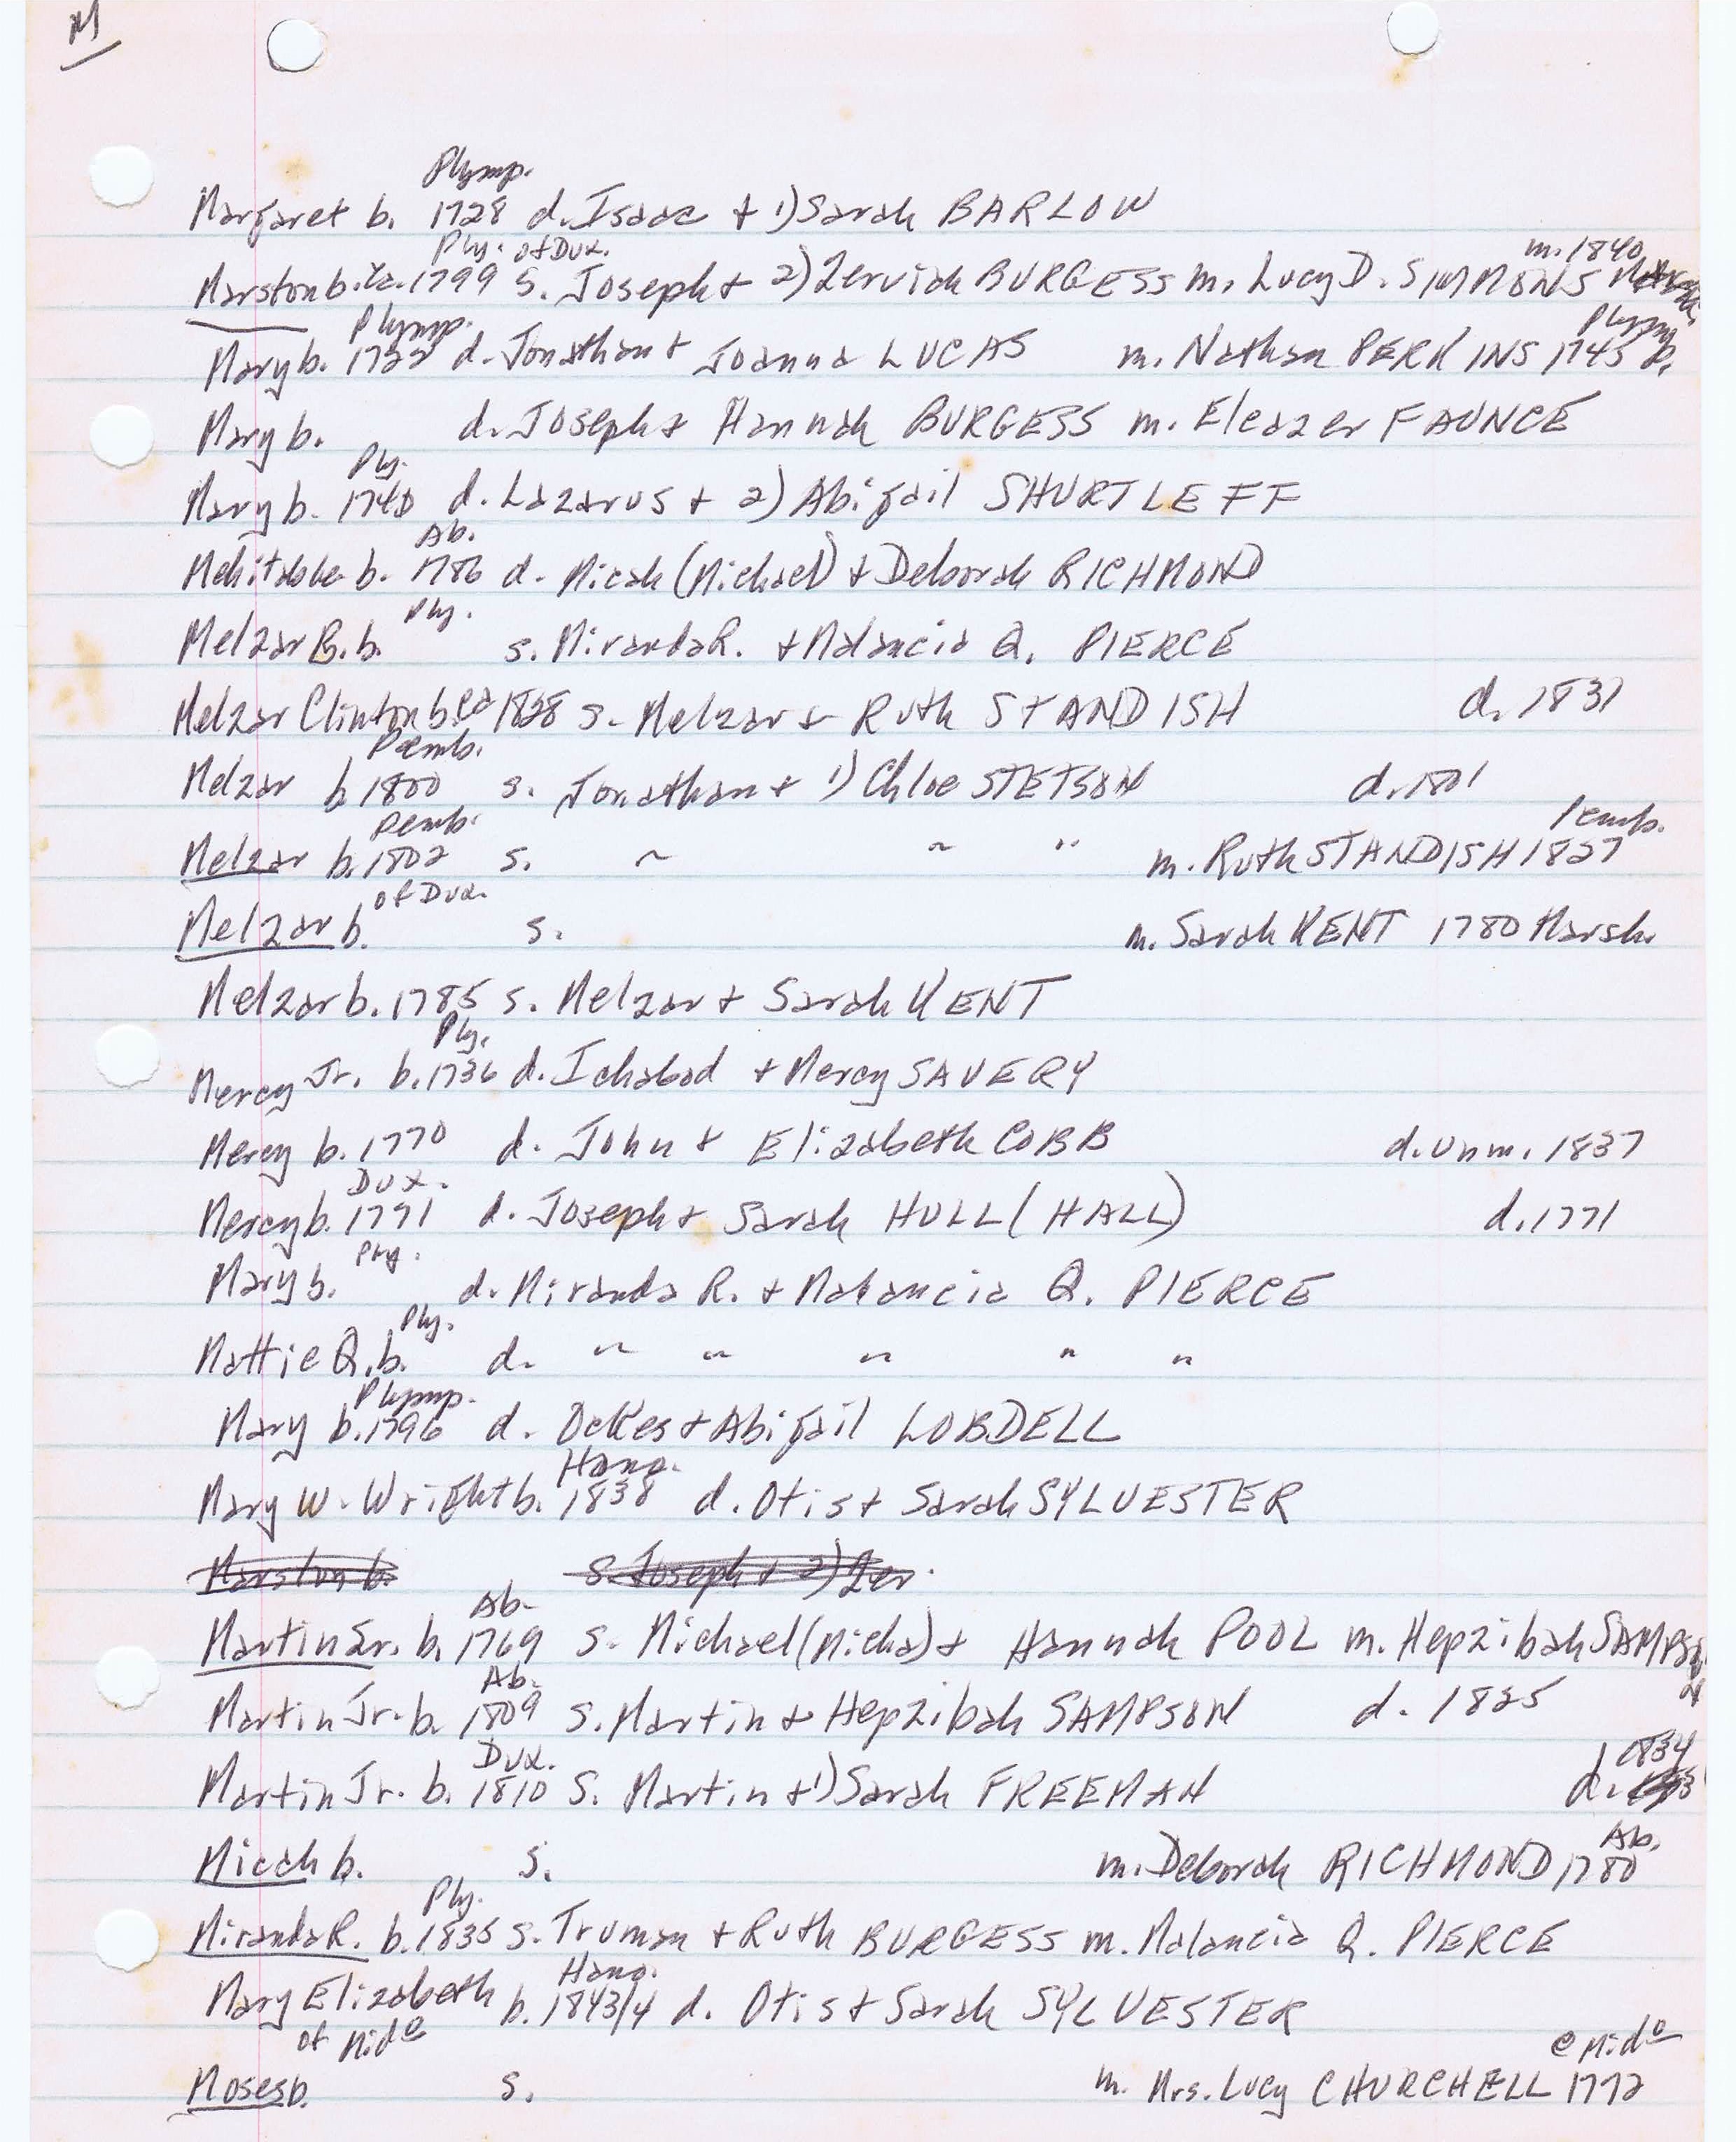 M
Plymp.
Margaret b. 1728 d. Isaac + 1) Sarah BARLOW
Ply. of Dux. m. 1840
Marston b. ca. 1799 s. Joseph + 2) Zerviah BURGESS m. Lucy D. SIMMONS
Plymp. Plymp.
Mary b. 1722 d. Jonathan + Joanna LUCAS m. Nathan PERKINS 1745
Mary b. d. Joseph + Hannah BURGESS m. Eleazer FAUNCE
Ply.
Mary b. 1740 d. Lazarus + 2) Abigail SHURTLEFF
Ab.
Mehitable b. 1786 d. Micah (Michael) + Deborah RICHMOND
Ply.
Melzar B. b. s. Miranda R. + Malancia Q. PIERCE
Melzar Clinton b. ca 1828 s. Melzar + Ruth STANDISH d. 1831
Pemb.
Melzar b. 1800 s. Jonathan + 1) Chloe STETSON d. 1801
Pemb. Pemb.
Melzar b. 1802 s. " " " m. Ruth STANDISH 1827
of Dux.
Melzar b. s. m. Sarah KENT 1780 Marsh.
Melzar b. 1785 s. Melzar + Sarah KENT
Ply.
Mercy Jr. b. 1736 d. Ichabod + Mercy SAVERY
Mercy b. 1770 d. John + Elizabeth COBB d. unm. 1837
Dux.
Mercy b. 1791 d. Joseph + Sarah HULL (HALL) d. 1771
Ply.
Mary b. d. Miranda R. + Malancia Q. PIERCE
Ply.
Mattie Q. b. d. " " " " "
Plymp.
Mary b. 1796 d. Ockes + Abigail LOBDELL
Hano.
Mary W. Wright b. 1838 d. Otis + Sarah SYLVESTER
Marston b. s. Joseph + 2) Zer.
Ab.
Martin Sr. b. 1769 s. Michael (Micha) + Hannah POOL m. Hepzibah SAMPSON
Ab.
Martin Jr. b. 1809 s. Martin + Hepzibah SAMPSON d. 1825
Dux. 1834
Martin Jr. b. 1810 s. Martin + 1) Sarah FREEMAN d.
Ab.
Micah b. s. m. Deborah RICHMOND 1780
Ply.
Miranda R. b. 1835 s. Truman + Ruth BURGESS m. Malancia Q. PIERCE
Hano.
Mary Elizabeth b. 1843/4 d. Otis + Sarah SYLVESTER
of Mido @ Mido
Moses b. s. m. Mrs. Lucy CHURCHELL 1772